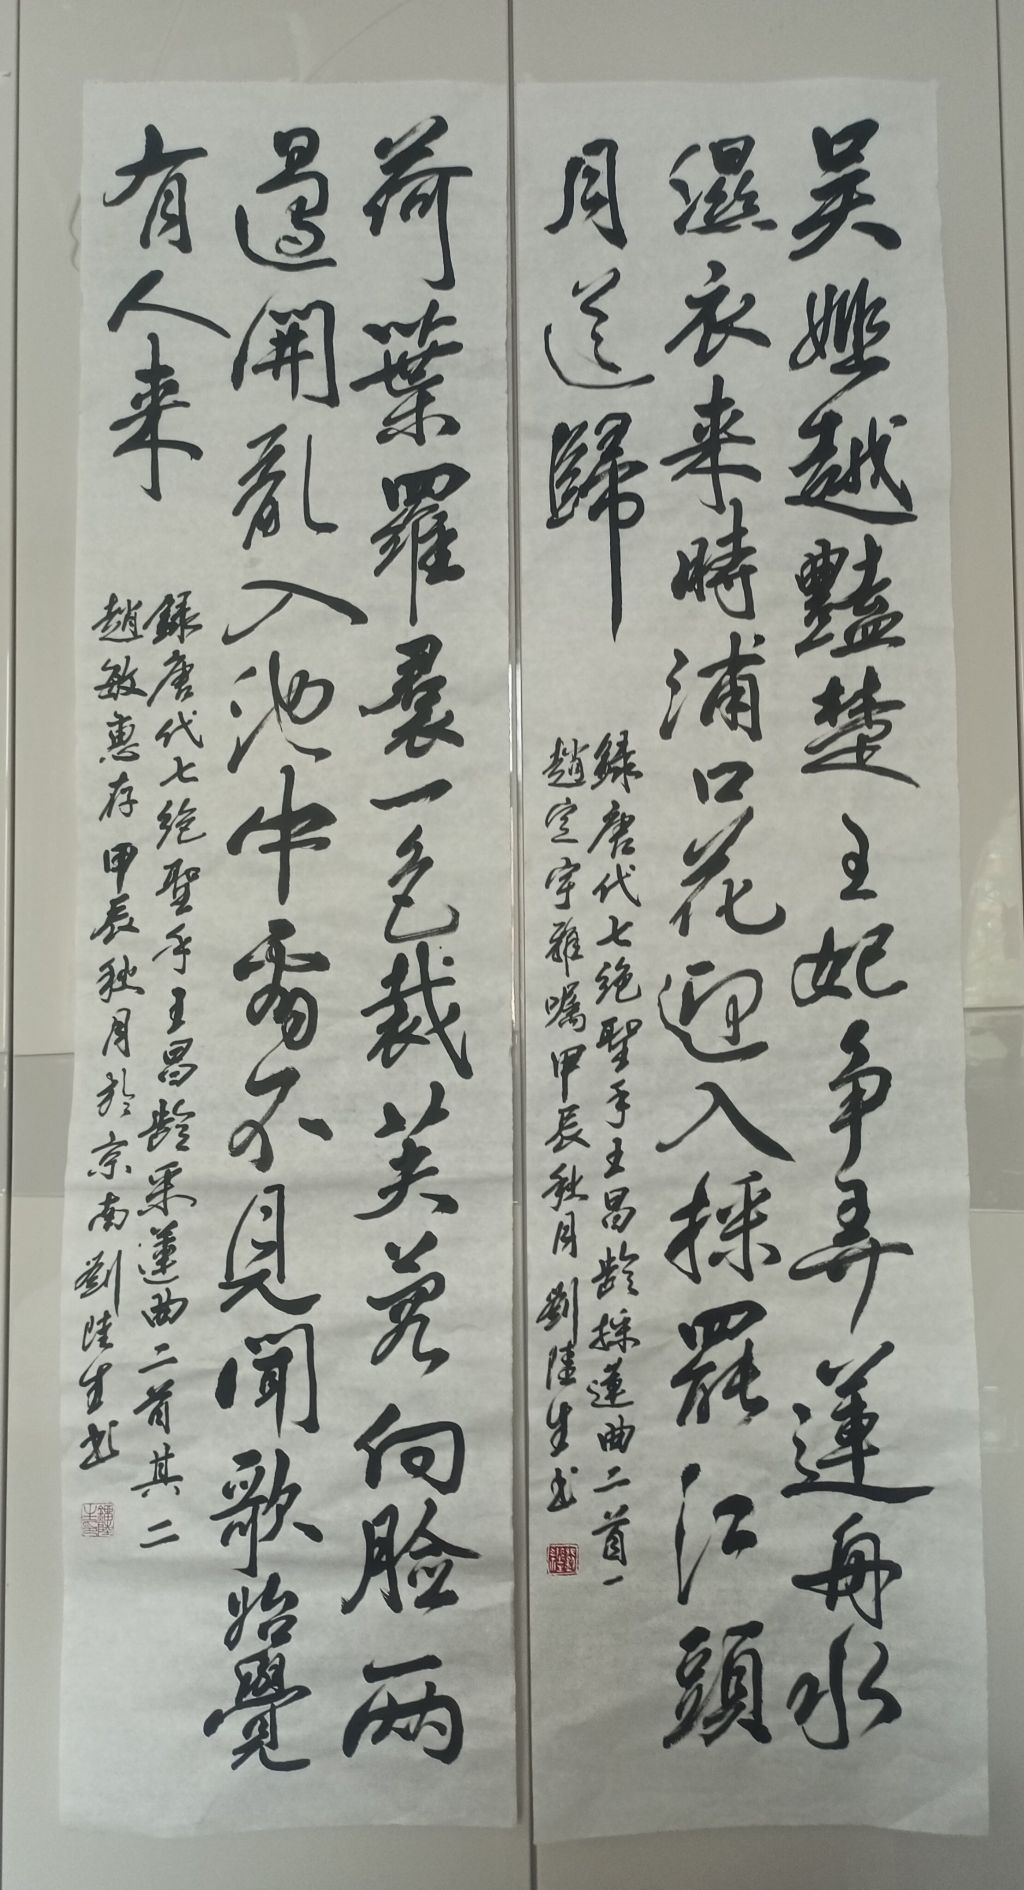 吳姬越豔楚王妃争弄蓮舟水
濕衣来時浦口花迎入採罷江頭
月送歸
録唐代七絶聖手王昌齡採蓮曲二首一
趙定宇雅嘱甲辰秋月劉陸生书
荷葉羅裠一色裁芙蓉向臉两
邊開亂入池中看不見聞歌始覺
有人来
録唐代七絶聖手王昌齡采蓮曲二首其二
趙敏惠存甲辰秋月於京南劉陸生书